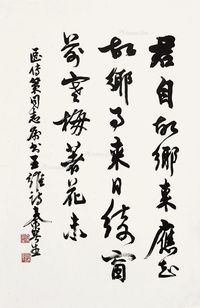 君自故鄉來應知
故鄉事來日綺窗
前寒梅著花未
匡傳策同志屬書王維詩秦咢生